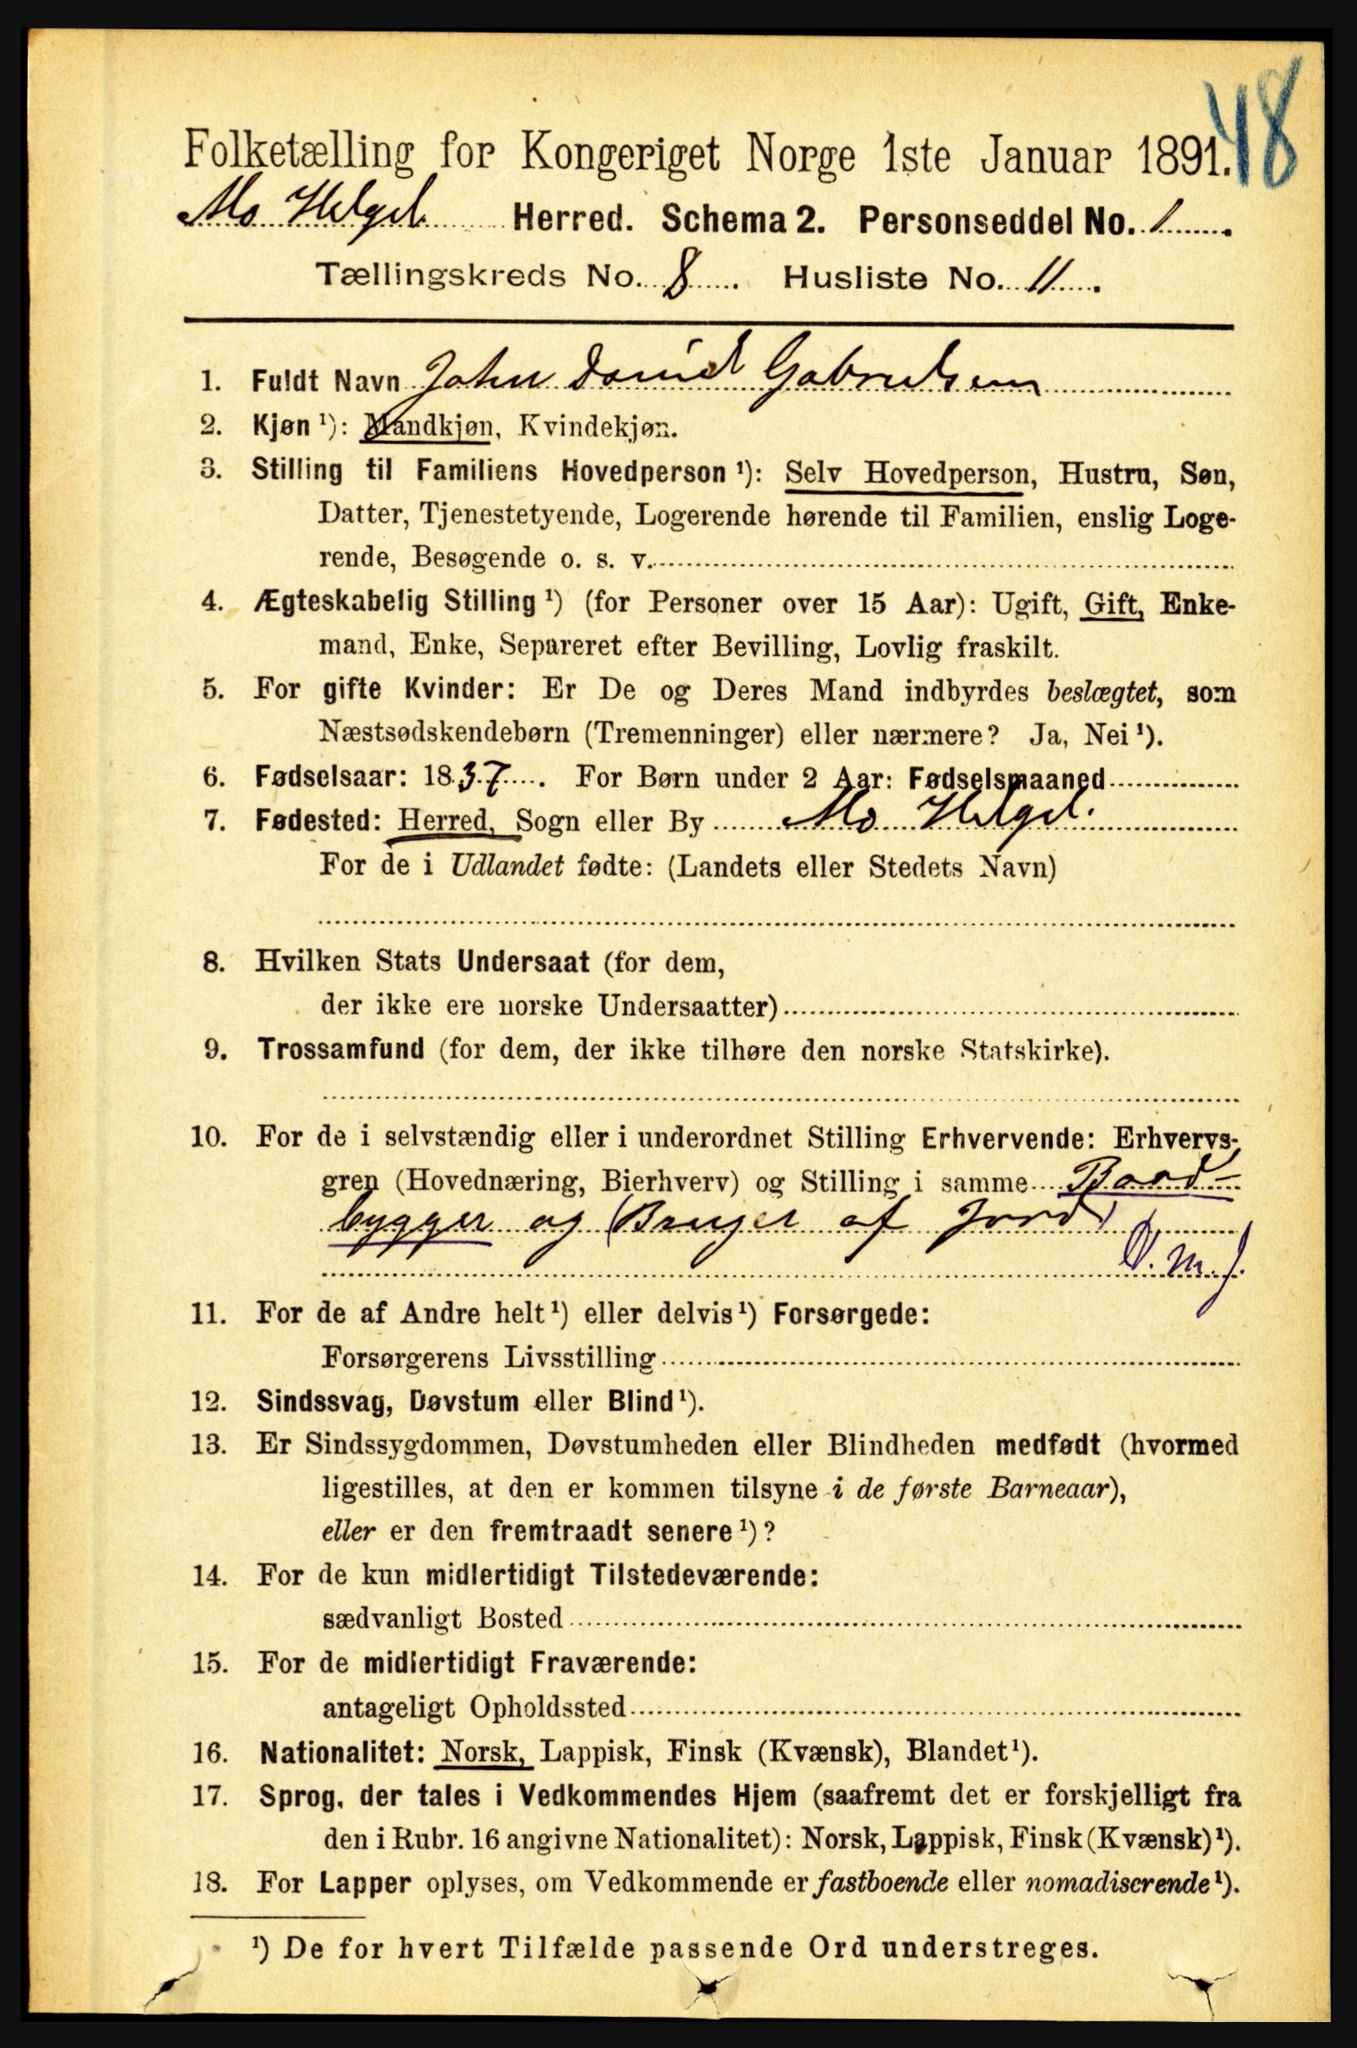 48
Folketælling for Kongeriget Norge 1ste Januar 1891.
Mo Helgel. Herred. Schema 2. Personseddel No. 1.
Tællingskreds No. 8. Husliste No. 11.
1. Fuldt Navn John Daniel Gabrielsen
2. Kjøn ¹): Mandkjøn, Kvindekjøn.
3. Stilling til Familiens Hovedperson ¹): Selv Hovedperson, Hustru, Søn,
Datter, Tjenestetyende, Logerende hørende til Familien, enslig Loge-
rende, Besøgende o. s. v.
4. Ægteskabelig Stilling ¹) (for Personer over 15 Aar): Ugift, Gift, Enke-
mand, Enke, Separeret efter Bevilling, Lovlig fraskilt.
5. For gifte Kvinder: Er De og Deres Mand indbyrdes beslægtet, som
Næstsødskendebørn (Tremenninger) eller nærmere? Ja, Nei ¹).
6. Fødselsaar: 1837. For Børn under 2 Aar: Fødselsmaaned
7. Fødested: Herred, Sogn eller By Mo Helgel.
For de i Udlandet fødte: (Landets eller Stedets Navn)
8. Hvilken Stats Undersaat (for dem,
der ikke ere norske Undersaatter)
9. Trossamfund (for dem, der ikke tilhøre den norske Statskirke).
10. For de i selvstændig eller i underordnet Stilling Erhvervende: Erhvervs-
gren (Hovednæring, Bierhverv) og Stilling i samme Baad-
bygger og (Bruger af Jord)
V. m. J.
11. For de af Andre helt ¹) eller delvis ¹) Forsørgede:
Forsørgerens Livsstilling
12. Sindssvag, Døvstum eller Blind ¹).
13. Er Sindssygdommen, Døvstumheden eller Blindheden medfødt (hvormed
ligestilles, at den er kommen tilsyne i de første Barneaar),
eller er den fremtraadt senere ¹)?
14. For de kun midlertidigt Tilstedeværende:
sædvanligt Bosted
15. For de midlertidigt Fraværende:
antageligt Opholdssted
16. Nationalitet: Norsk, Lappisk, Finsk (Kvænsk), Blandet ¹).
17. Sprog, der tales i Vedkommendes Hjem (saafremt det er forskjelligt fra
den i Rubr. 16 angivne Nationalitet): Norsk, Lappisk, Finsk (Kvænsk) ¹).
18. For Lapper oplyses, om Vedkommende er fastboende eller nomadiserende ¹).
¹) De for hvert Tilfælde passende Ord understreges.